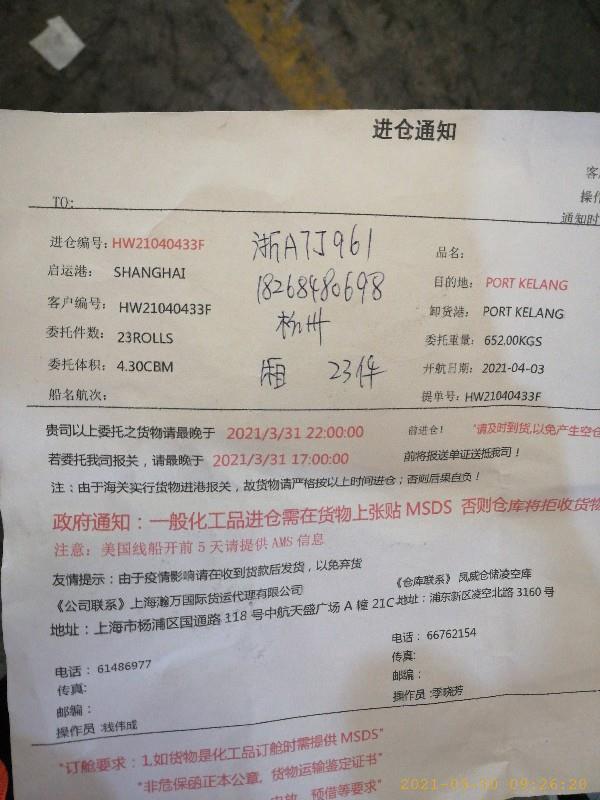 进仓通知
客
操作
通知时
TO:
进仓编号: HW21040433F
浙A7J961
品名:
启运港: SHANGHAI
18268480698
目的地: PORT KELANG
客户编号: HW21040433F
杭州
卸货港: PORT KELANG
委托件数: 23ROLLS
委托重量: 652.00KGS
委托体积: 4.30CBM
厢 23件
开航日期: 2021-04-03
船名航次:
提单号: HW21040433F
贵司以上委托之货物请最晚于 2021/3/31 22:00:00 前进仓! "请及时到货,以免产生空仓
若委托我司报关，请最晚于 2021/3/31 17:00:00 前将报送单证送抵我司!
注：由于海关实行货物进港报关，故货物请严格按以上时间进仓；否则后果自负!
政府通知：一般化工品进仓需在货物上张贴 MSDS 否则仓库将拒收货物
注意：美国线船开前 5 天请提供 AMS 信息
友情提示：由于疫情影响请在收到货款后发货，以免弃货
《公司联系》上海瀚万国际货运代理有限公司
《仓库联系》 凤威仓储凌空库
地址：上海市杨浦区国通路 118 号中航天盛广场 A 幢 21C
地址：浦东新区凌空北路 3160 号
电话： 61486977
电话： 66762154
传真:
传真:
邮编：
邮编：
操作员:钱伟成
操作员:季晓芳
"订舱要求：1,如货物是化工品订舱时需提供 MSDS"
"非危保函正本公章, 货物运输鉴定证书"
预借等要求"
09:26:20